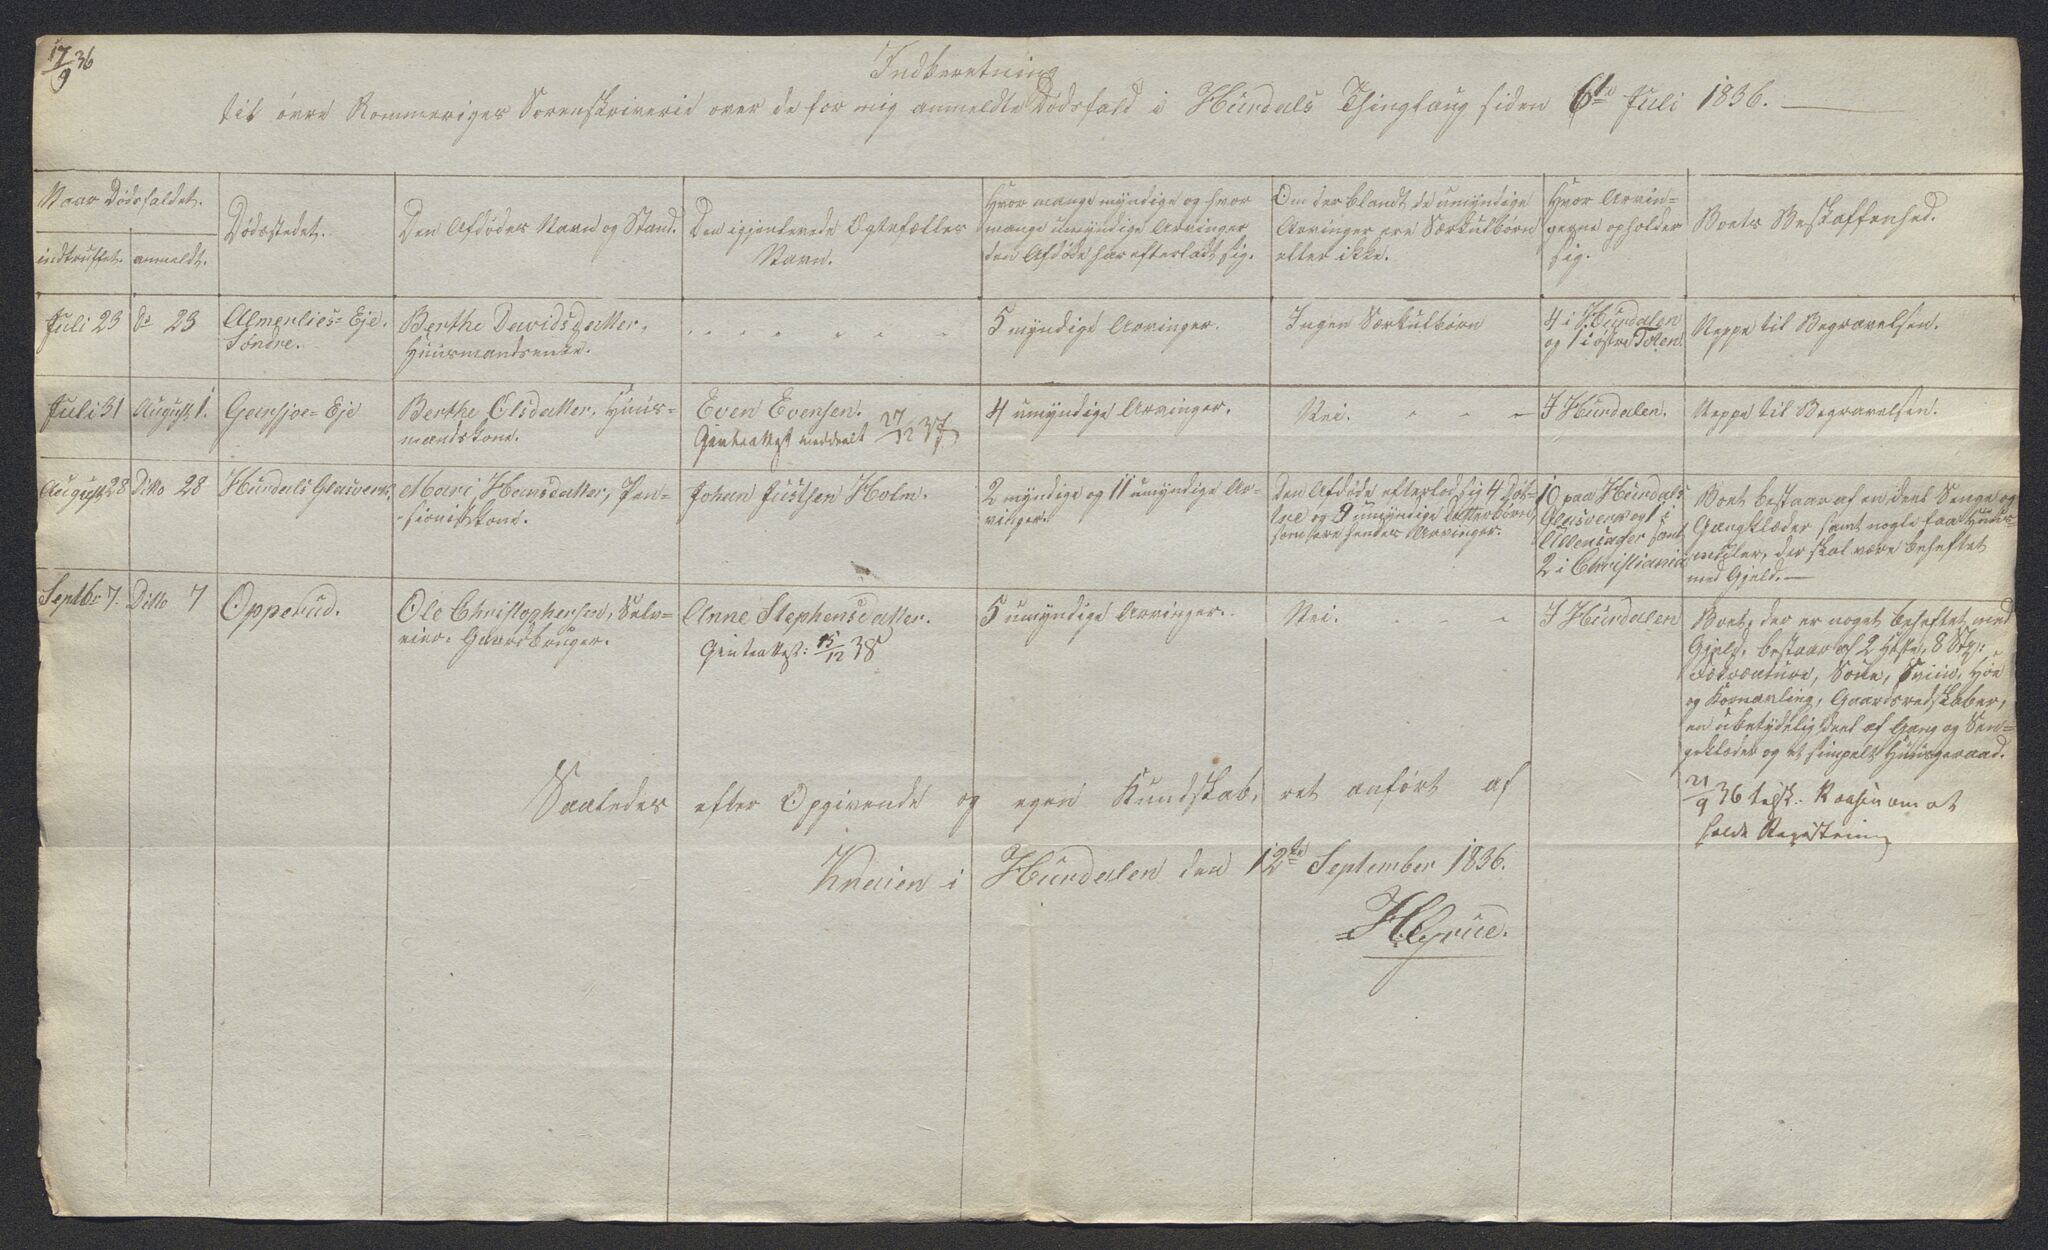 17/9 36
Indberetning
til övre Rommeriges Sorenskriverie over de for mig anmeldte Dödsfald i Hurdals Thinglaug siden 6te Juli 1836.
Naar Dödsfaldet.
indtruffet.
anmeldt.
Dödsstedet.
Den Afdödes Navn og Stand.
Den igjenlevede Ægtefælles
Navn.
Hvor mange myndige og hvor
mange umyndige Arvinger
den Afdöde har efterladt sig.
Om der blandt de umyndige
Arvinger ere Særkulbörn
eller ikke.
Hvor Arvin=
gerne opholder
sig.
Boets Beskaffenhed.
Juli 23
Do 23
Almerlies= Eje.
Söndre.
Berthe Davidsdatter,
Huusmandsenke.
5 myndige Arvinger.
Ingen Særkulbörn
4 i Hurdalen
og 1 i östre Toten.
Neppe til Begravelsen.
Juli 31
August 1.
Garsjöe= Eje
Berthe Olsdatter, Huus=
mandskone.
Even Evensen.
Gienteattest meddeelt 27/12 37
4 umyndige Arvinger.
Nei.
I Hurdalen.
Neppe til Begravelsen.
August 28
Ditto 28
Hurdals Glasverk.
Mari Hansdatter, Pen=
sionistkone.
Johan Justsen Holm.
2 myndige og 11 umyndige Ar=
vinger.
Den Afdöde efterlod sig 4 Döt=
tre og 9 umyndige Datterbörn,
som ere hendes Arvinger.
10 paa Hurdals
Glasverk og 1 i
Ullensager samt
2 i Christiania
Boet bestaar af en deel Senge og
Gangklæder samt nogle faa Huus=
midler, der skal være beheftet
med Gjeld.
Septbr 7.
Ditto 7
Opperud.
Ole Christophersen, Selv=
eier. Gaardbruger.
Anne Stephensdatter.
Gienteattest: 15/12 38
5 umyndige Arvinger.
Nei.
I Hurdalen
Boet, der er noget beheftet med
Gjeld, bestaar af 2 Heste, 8 Stkr:
Fækreature, Soue, Sviin, Höe
og Kornavling, Gaardsredskaber,
en ubetydelig deel af Gang og Sen=
geklæder og et simpelt Huusgeraad.
21/9 36 om at
holde Registrering
Saaledes efter Opgivende og egen Kundskab, ret anfört af
Knaien i Hurdalen den 12te September 1836.
H Grue.